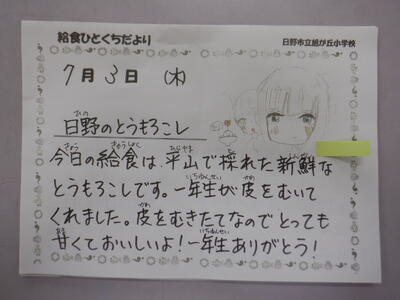 給食ひとくちだより
日野市立旭が丘小学校
7月3日(木)
日野のとうもろこし
今日の給食は、平山で採れた新鮮な
とうもろこしです。一年生が皮をむいて
くれました。皮をむきたてなのでとっても
甘くておいしいよ！一年生ありがとう！